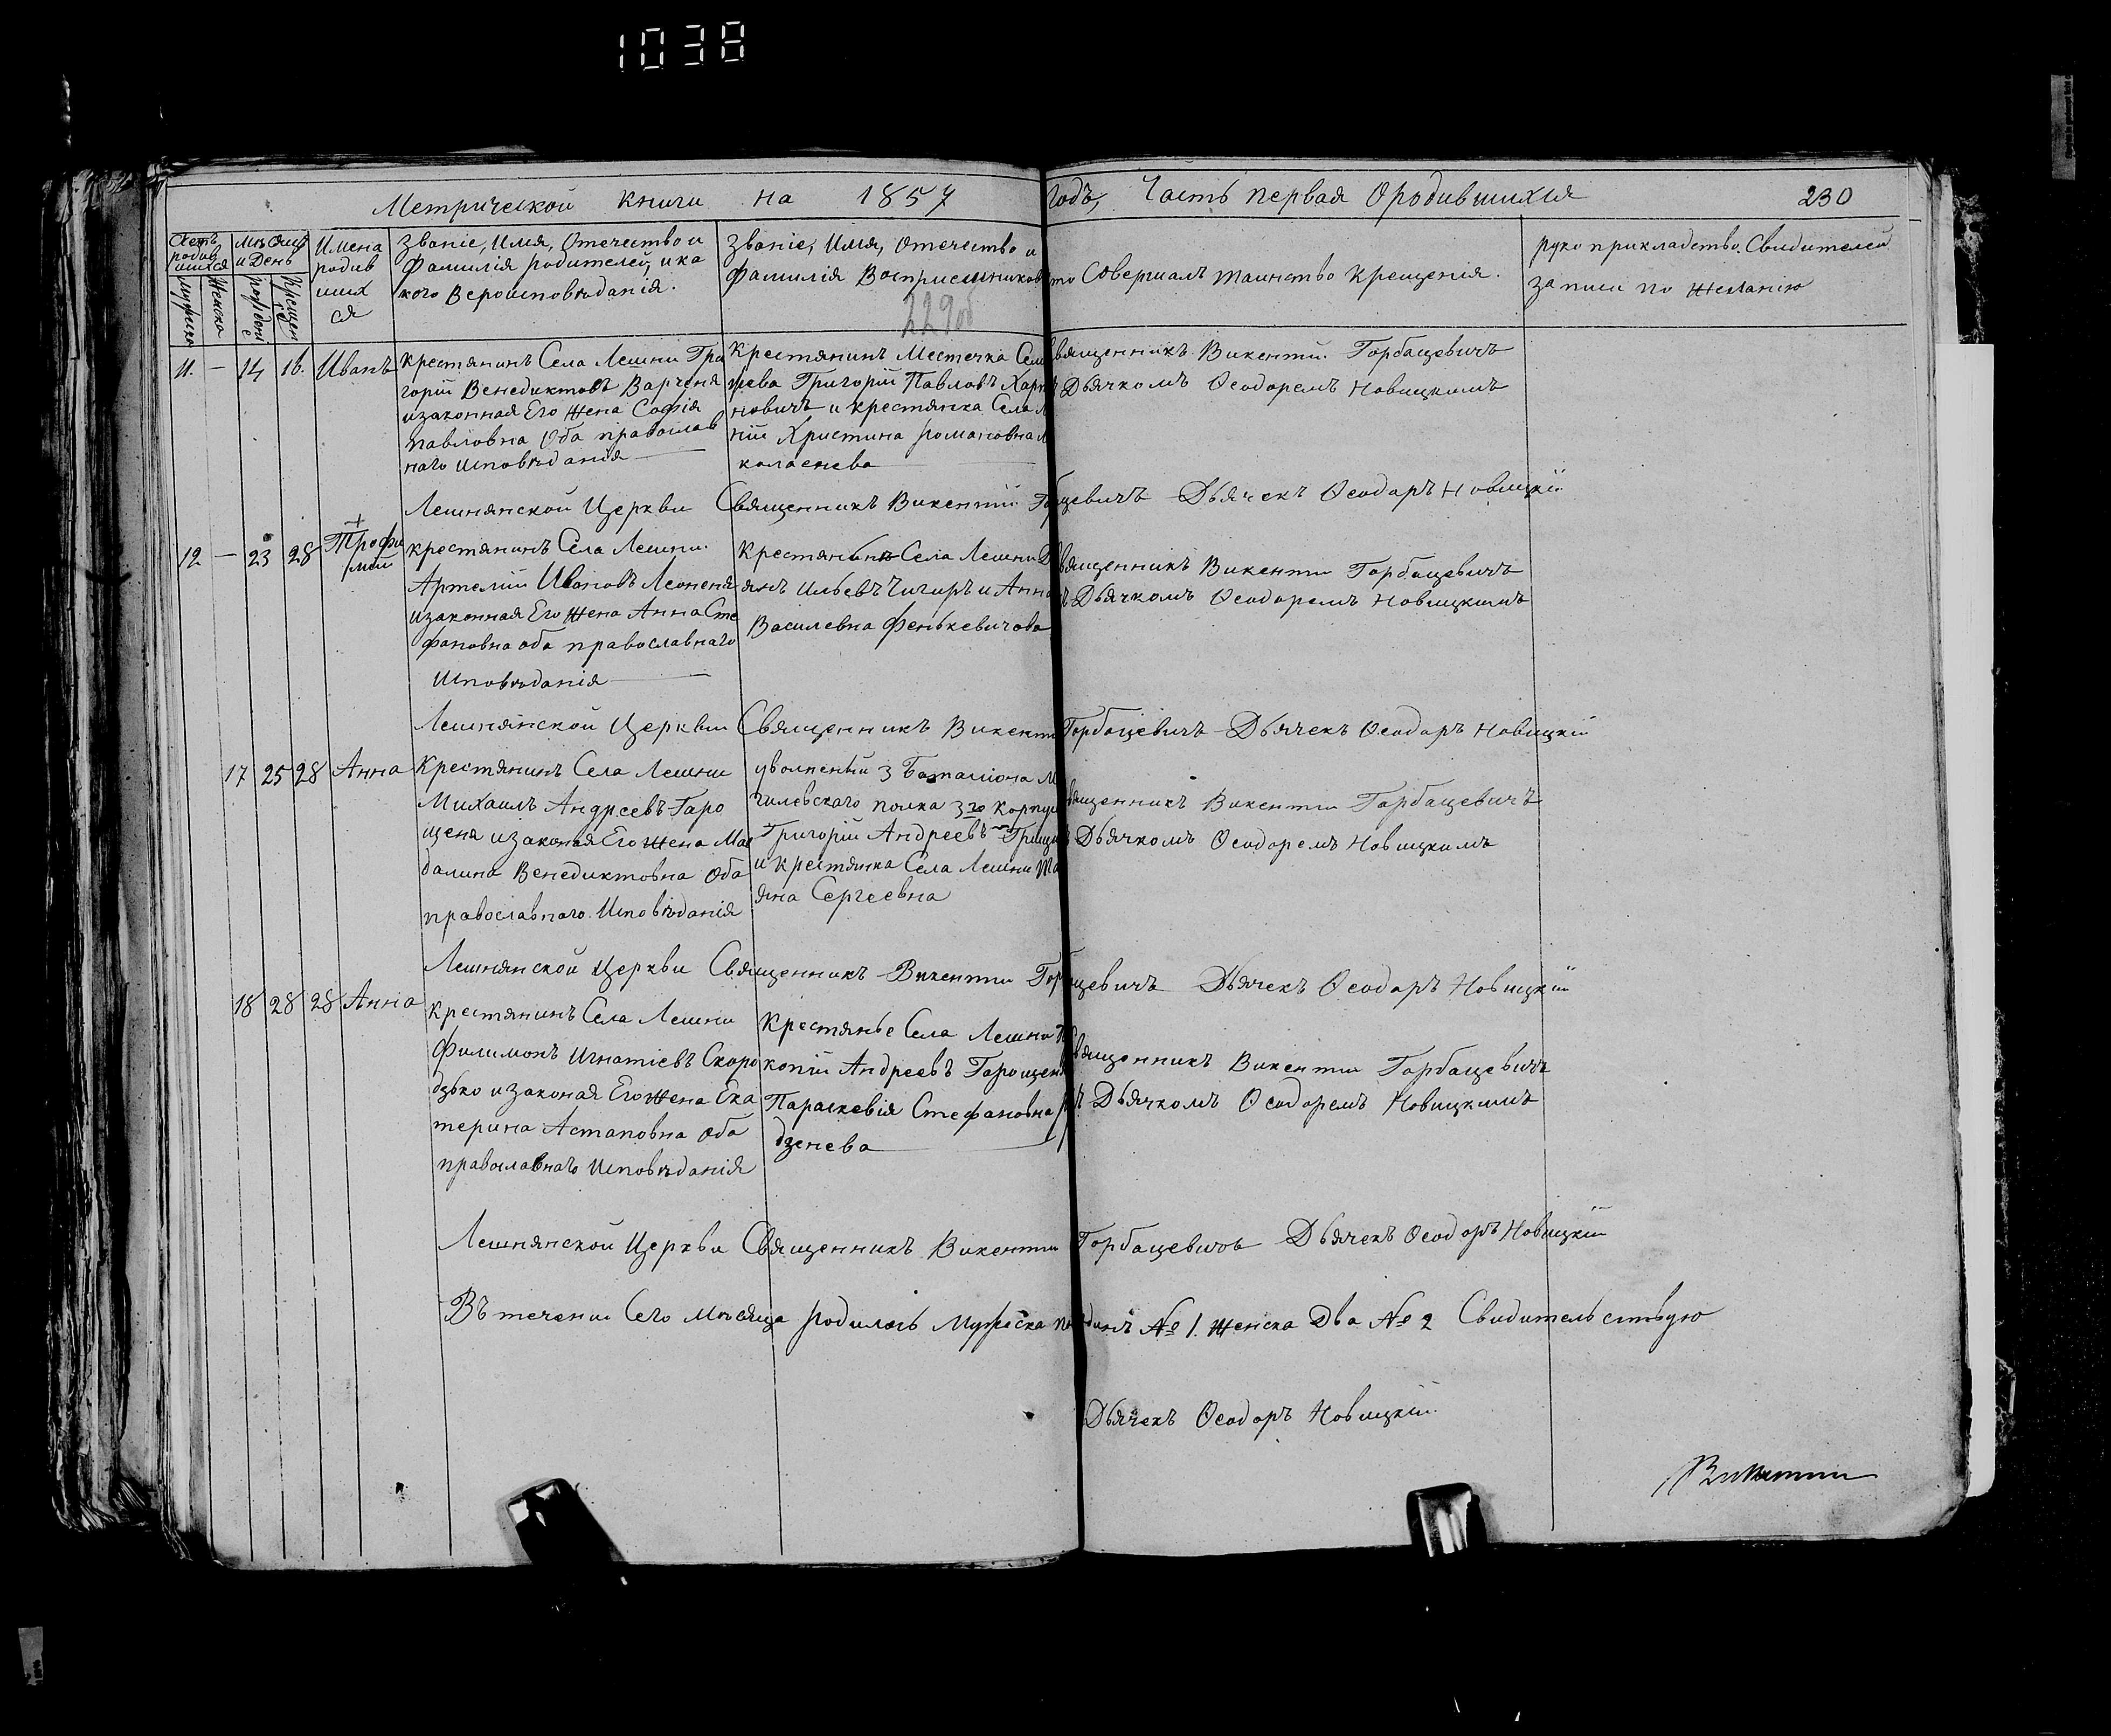 1038
Метрической книги на 1857 годъ, Часть первая Ородившихся 230
Счетъ родив шихся
Мѣсяцъ и День
Имена родив шихъ ся
Званіе, Имя, Отечество и Фамилія родителей, и ка кого Вероисповѣданія.
Званіе, Имя, Отечество и Фамилія Восприемниковъ
то Совершалъ таинство Крещенія.
руко прикладство Свидителей записи по желанію
мужеска
Женска
рожденіе
Крещен
229об
11. — 14 16. Иванъ
Крестянинъ Села Лешни Гри
горій Венедиктовъ Варченя
изаконная Его жена Софія
Павловна Оба православ
наго исповѣданія
Крестянинъ Местечка Семе
жева Григорій Павловъ Хары
новичъ и крестянка Села Л
ній Христина романовна
каласнева
вященникъ Викентій Горбацевичъ
Дьячкомъ Ѳеодоремъ Новицкимъ
Лешнянской Церкви Священникъ Викентій Горбацевичъ Дьячекъ Ѳеодоръ Новицкій
12 — 23 28 Трофи мій
крестянинъ Села Лешни
Артемій Ивановъ Леоненя
изаконная Его жена Анна Сте
фановна оба православнаго
Исповѣданія
Крестянинъ Села Лешни Д
янъ Ильевъ Чигиръ и Анна
Василевна Фенькевичова
вященникъ Викентій Горбацевичъ
ъ Дьячкомъ Ѳеодоремъ Новицкимъ
Лешнянской Церквы Священникъ Викенти Горбацевичъ Дьячекъ Ѳеодоръ Новицкій
17 25 28 Анна
Крестянинъ Села Лешни
Михаилъ Андреевъ Гаро
щеня изаконая Его жена Маг
далина Венедиктовна Оба
православнаго Исповѣданія
уволненый 3 Баталіона М
гилевскаго полка 3го Корпуса
Григорій Андреевъ Грицк
и Крестянка Села Лешни Та
яна Сергеевна
вященникъ Викентій Горбацевичъ
Дьячкомъ Ѳеодоремъ Новицкимъ
Лешнянской Церкви Священникъ Викенти Горбацевичъ Дьячекъ Ѳеодоръ Новицкій
18 28 28 Анна
Крестянинъ Села Лешни
Филимонъ Игнатіевъ Скоро
дзько изаконая Его жена Ека
терина Астаповна Оба
православнаго Исповѣданія
Крестянье Села Лешни П
копій Андреевъ Горощеня
Параскевія Стефановна
дзенева
вященникъ Викентій Горбацевичъ
ъ Дьячкомъ Ѳеодоремъ Новицкимъ
Лешнянской Церкви Священникъ Викенти Горбацевичъ Дьячекъ Ѳеодоръ Новицкій
Въ течении Сего Мѣсяца родилось Мужеска одинъ № 1. Женска Два № 2 Свидительствую
Дьячекъ Ѳеодоръ Новицкій